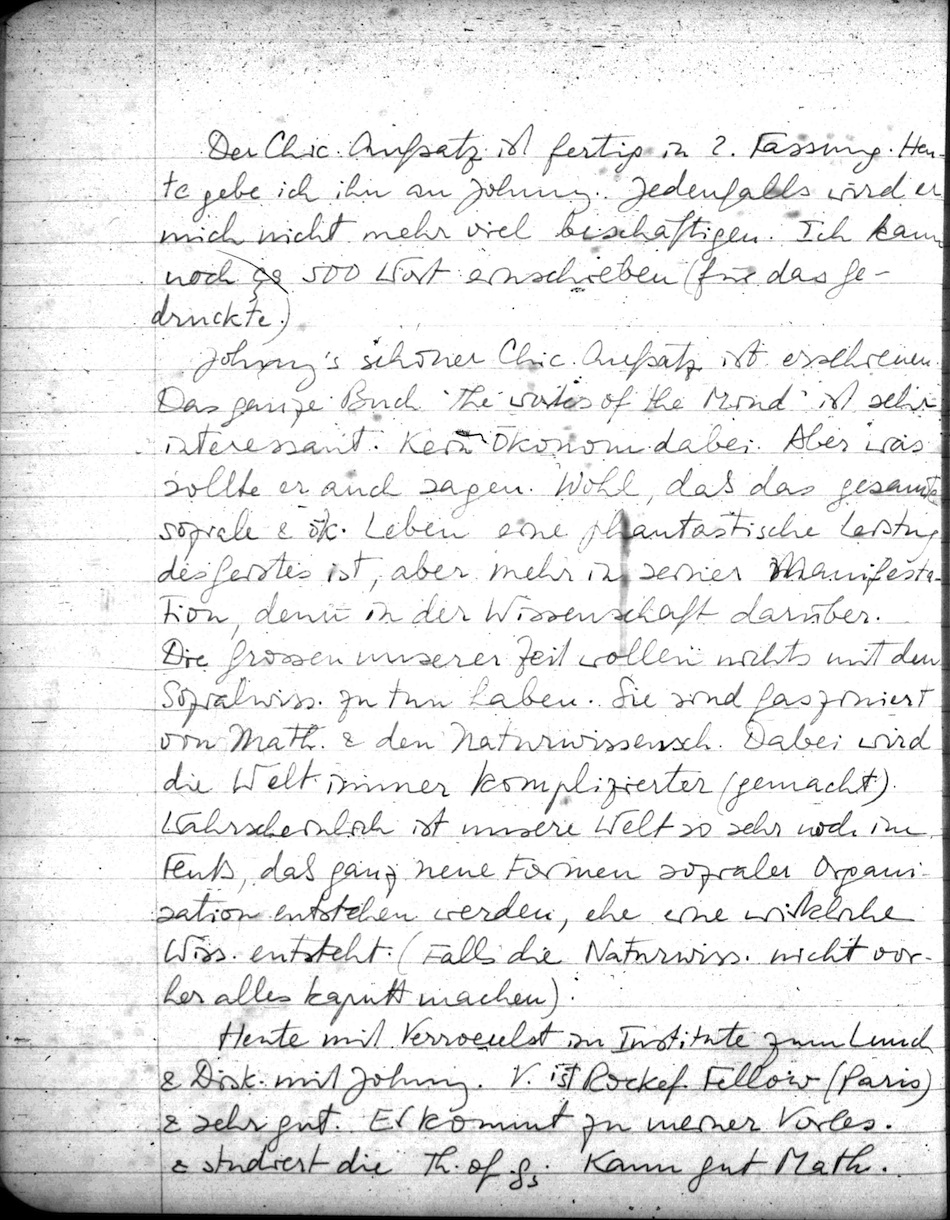 Der Chic. Aufsatz ist fertig in 2. Fassung. Heu-
te gebe ich ihn an Johnny. Jedenfalls wird er
mich nicht mehr viel beschäftigen. Ich kann
noch 500 Wort einschieben (für das Ge-
druckte.)
Johnny's schöner Chic. Aufsatz ist erschienen.
Das ganze Buch 'The works of the Mind' ist sehr
interessant. Kein Ökonom dabei. Aber was
sollte er auch sagen. Wohl, daß das gesamte
soziale & ök. Leben eine phantastische Leistung
des Geistes ist, aber mehr in seiner Manifesta-
tion, denn in der Wissenschaft darüber.
Die Grossen unserer Zeit wollen nichts mit den
Sozialwiss. zu tun haben. Sie sind fasziniert
von Math. & den Naturwissensch. Dabei wird
die Welt immer komplizierter (gemacht).
Wahrscheinlich ist unsere Welt so sehr noch im
Fluß, daß ganz neue Formen sozialer Organi-
sation entstehen werden, ehe eine wirkliche
Wiss. entsteht. (Falls die Naturwiss. nicht vor-
her alles kaputt machen).
Heute mit Verroeulst im Institute zum Lunch
& Disk. mit Johnny. V. ist Rockef. Fellow (Paris)
& sehr gut. Er kommt zu meiner Vorles.
& studiert die Th. of gs. Kann gut Math.